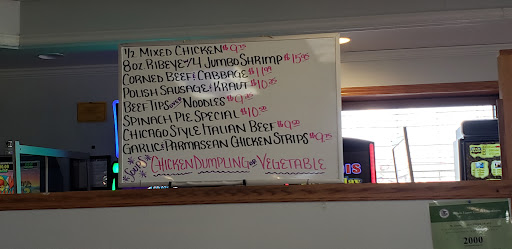 1/2 MIXED CHICKEN $9.95
8OZ RIBEYE W/4 JUMBO SHRIMP $15.95
CORNED BEEF & CABBAGE $11.99
POLISH SAUSAGE & KRAUT $10.25
BEEF TIPS OVER NOODLES $9.25
SPINACH PIE SPECIAL $10.50
CHICAGO STYLE ITALIAN BEEF $9.50
GARLIC & PARMASEAN CHICKEN STRIPS $9.25
*SOUPS* CHICKEN DUMPLING OR VEGETABLE
2000